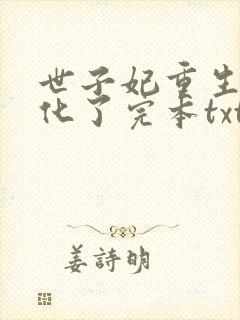 世子妃重生
化了完本txt
姜詩明